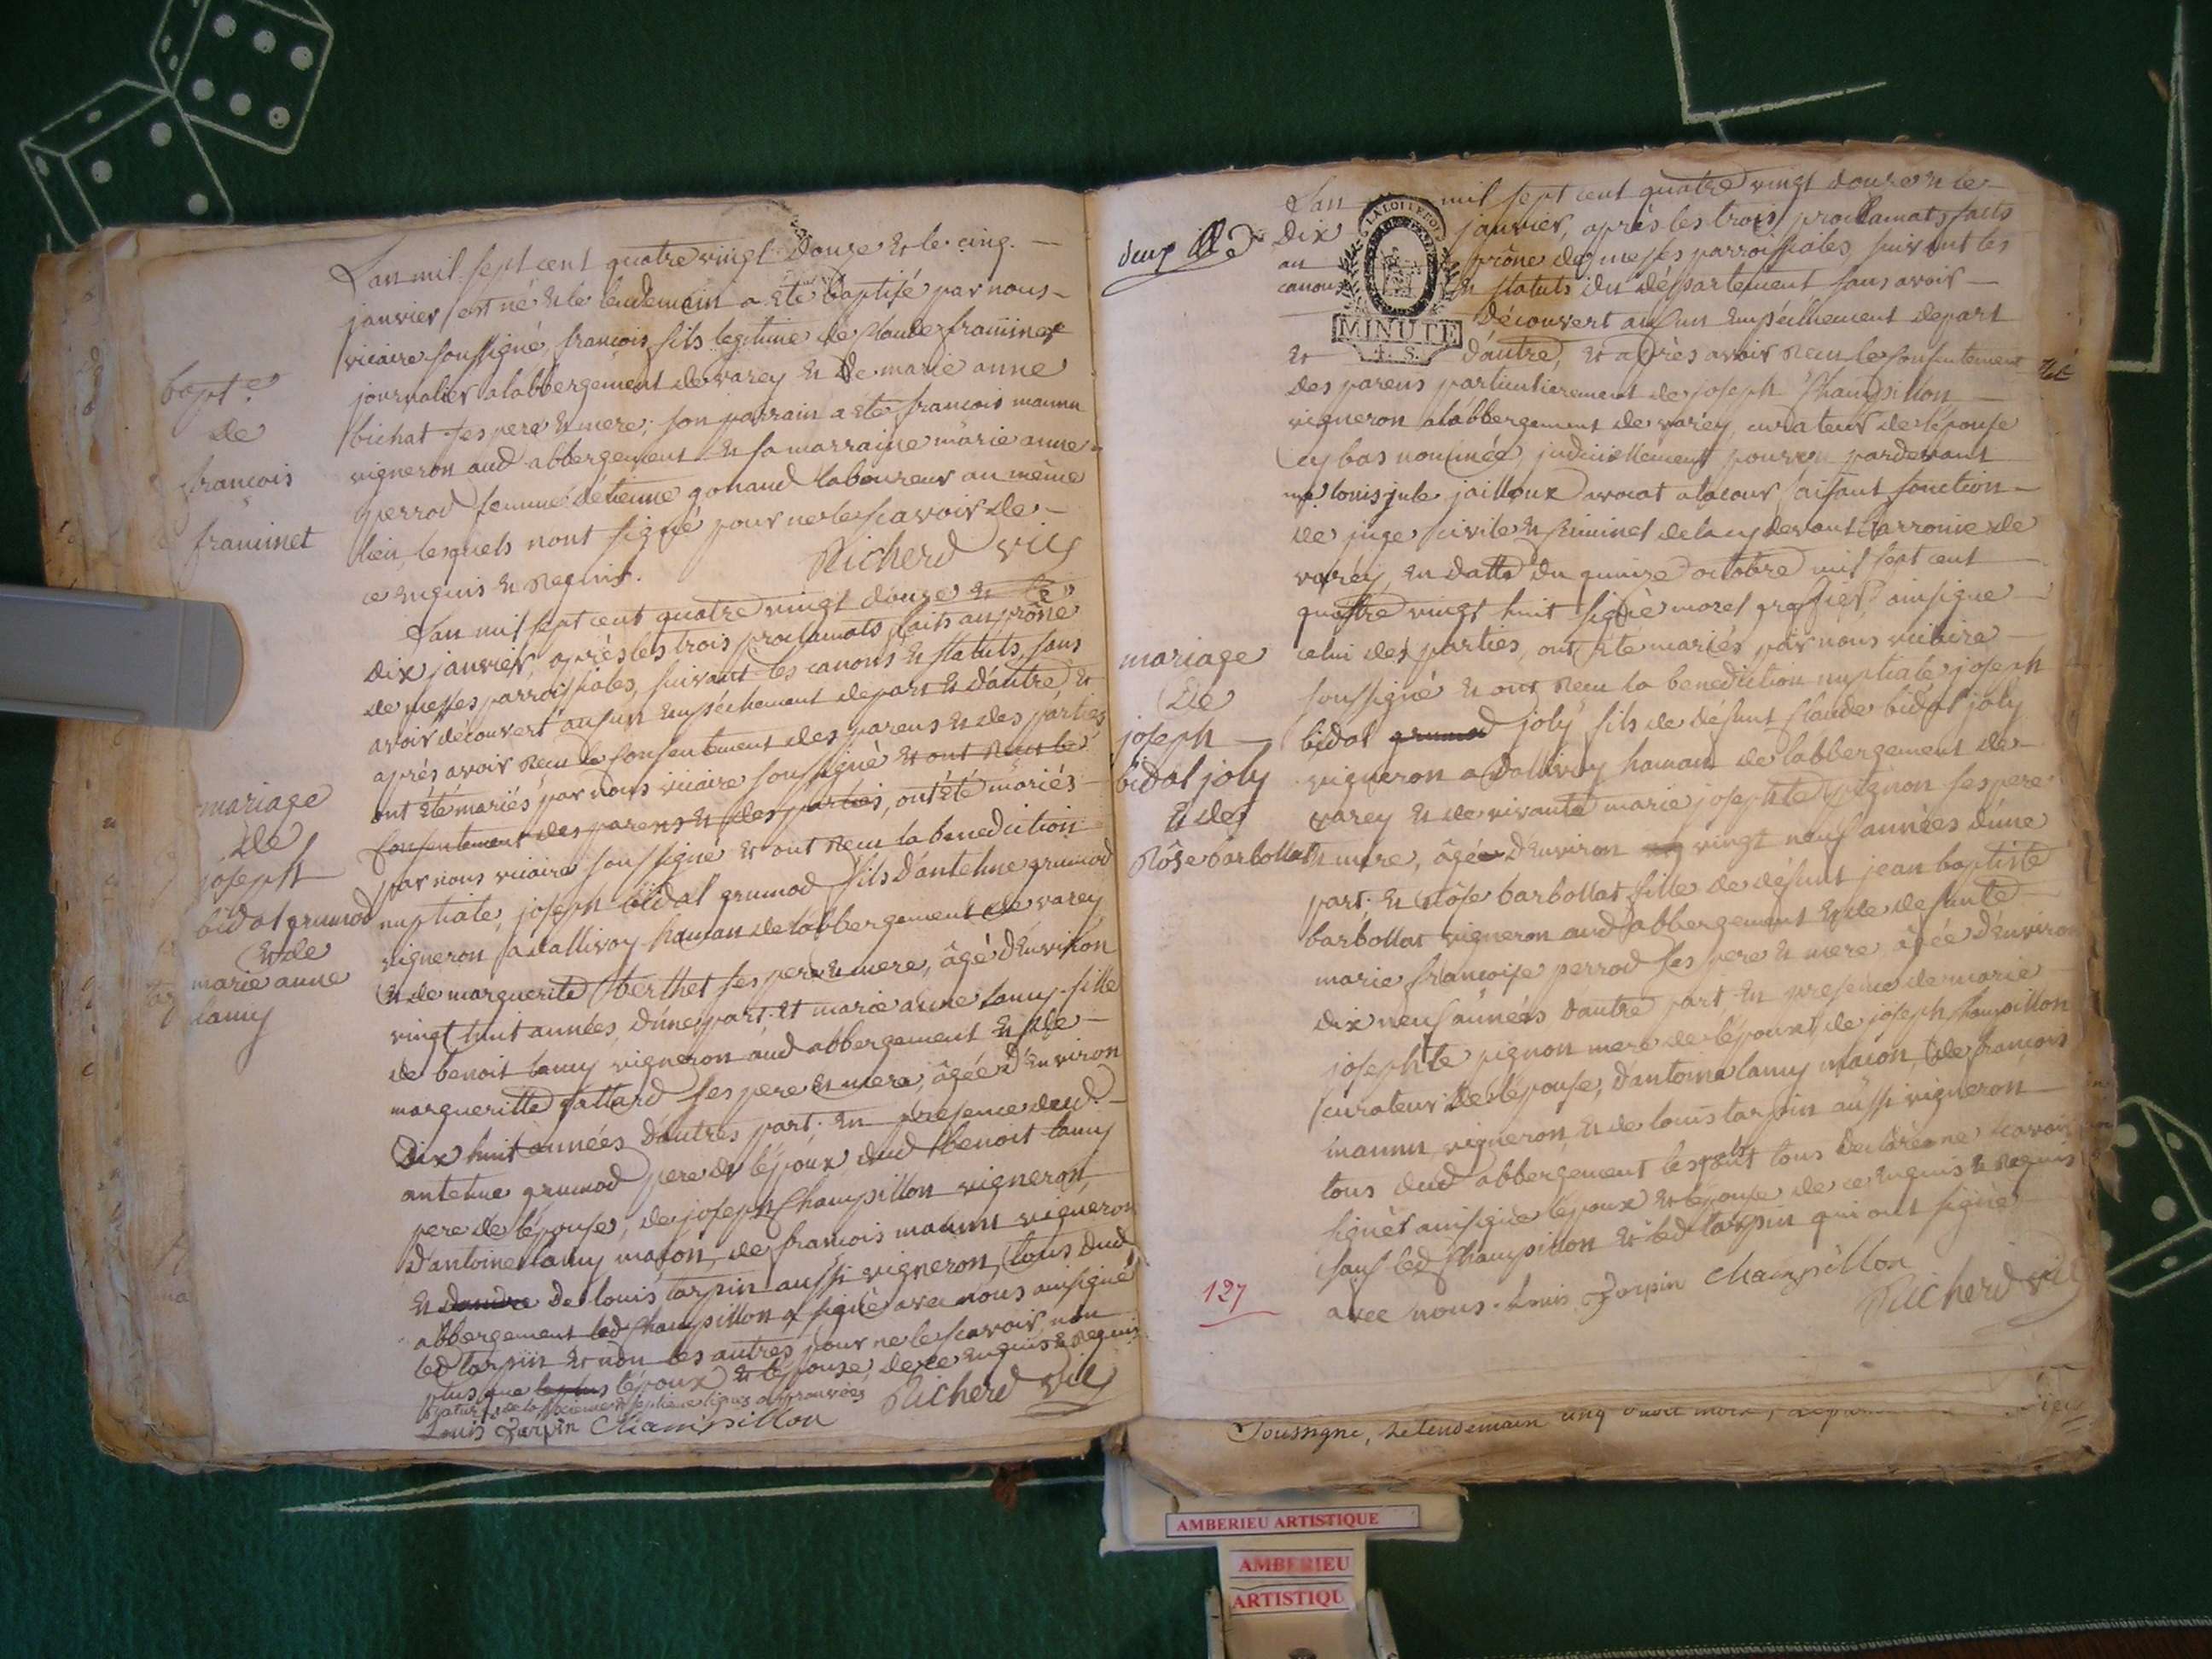 bapt.e
de
francois
framinet
Lan mil sept cent quatre vingt douze et le cinq.
janvier est né et le lendemain a eté baptisé par nous
vicaire soussigné, francois, fils legitime de Claude framinet
journalier a labbergement de varey et de marie anne
bichat ses pere et mere; son parrain a eté francois maunu
vigneron aud abbergement et sa marraine marie anne
perrod femme detienne gonaud laboureur au même
lieu, lesquels nont signé pour ne le scavoir de
ce enquis et requis.
Richerd vic
mariage
de
joseph
bidat grumod
et de
marie anne
lamy
Lan mil sept cent quatre vingt douze et le
dix janvier, après les trois proclamats faits au prône
de messes parroissiales, suivant les canons et statuts, sans
avoir découvert aucun empéchement de part et dautre, et
après avoir recu le consentement des parens et des parties
ont été mariés par nous vicaire soussigné et ont recu le
consentement des parens et des parties, ont été mariés
par nous vicaire soussigné et ont recu la benediction
nuptiale, joseph bidat grumod fils dantelme grumod
vigneron a dallivoy hamau de labbergement de varey
et de marguerite berthet ses pere et mere, âgé denviron
vingt huit années, dune part; et marie anne lamy fille
de benoit lamy vigneron aud abbergement et de
margueritte gattard ses pere et mere, âgée denviron
dix huit années dautres part; en présence dud.
antelme grumod pere de lépoux dud benoit lamy
pere de lépouse, de joseph Champillon vigneron,
dantoine lamy macon, de francois maunu vigneron
et de louis tarpin aussi vigneron, tous dud
abbergement led Champillon a signé avec nous ainsique
led tarpin et non les autres pour ne le scavoir, non
plus que lépoux et lépouse, de ce enquis et requis
Louis Tarpin Champillon Richerd vic
Lan mil sept cent quatre vingt douze et le
dix janvier, après les trois proclamats faits
au prône des messes parroissiales, suivant les
canons et statuts du département sans avoir
découvert aucun empéchement de part
et dautre, et après avoir recu le consentement
des parens particulierement de joseph Champillon
vigneron a labbergement de varey, curateur de lépouse
cy bas nommée, judiciellement pourvu pardevant
me louis jule jailloux avocat a la cour faisant fonction
de juge civile et criminel de la cy devant barronie de
varey, en datte du quinze octobre mil sept cent
quattre vingt huit signé morel greffier ainsique
celui des parties, ont été mariés par nous vicaire
soussigné et ont recu la benediction nuptiale joseph
bidat grumod joly fils de défunt Claude bidat joly
vigneron a dallivoy hamau de labbergement de
varey et de vivante marie josephte pignon ses pere
et mere, âgé denviron vingt neuf années dune
part; et rôse barbollat fille de défunt jean baptiste
barbollat vigneron aud abbergement et de defunte
marie francoise perrod ses pere et mere âgée denviron
dix neuf années dautre part en presence de marie
josephte pignon mere de lépoux, de joseph Champillon
curateur de lépouse, dantoine lamy macon, de francois
maunu vigneron, et de louis tarpin aussi vigneron
tous dud abbergement lesquels tous declaré ne scavoir
signer ainsique lépoux et lépouse de ce enquis et requis
sauf led Champillon et led tarpin qui ont signé
avec nous. Louis Tarpin Champillon
Richerd vic
mariage
de
joseph
bidat joly
et de
Rôse barbollat
127
LA LOI LE ROI
MINUTE
4. S.
soussigné, le lendemain cinq
AMBERIEU ARTISTIQUE
AMBERIEU
ARTISTIQU